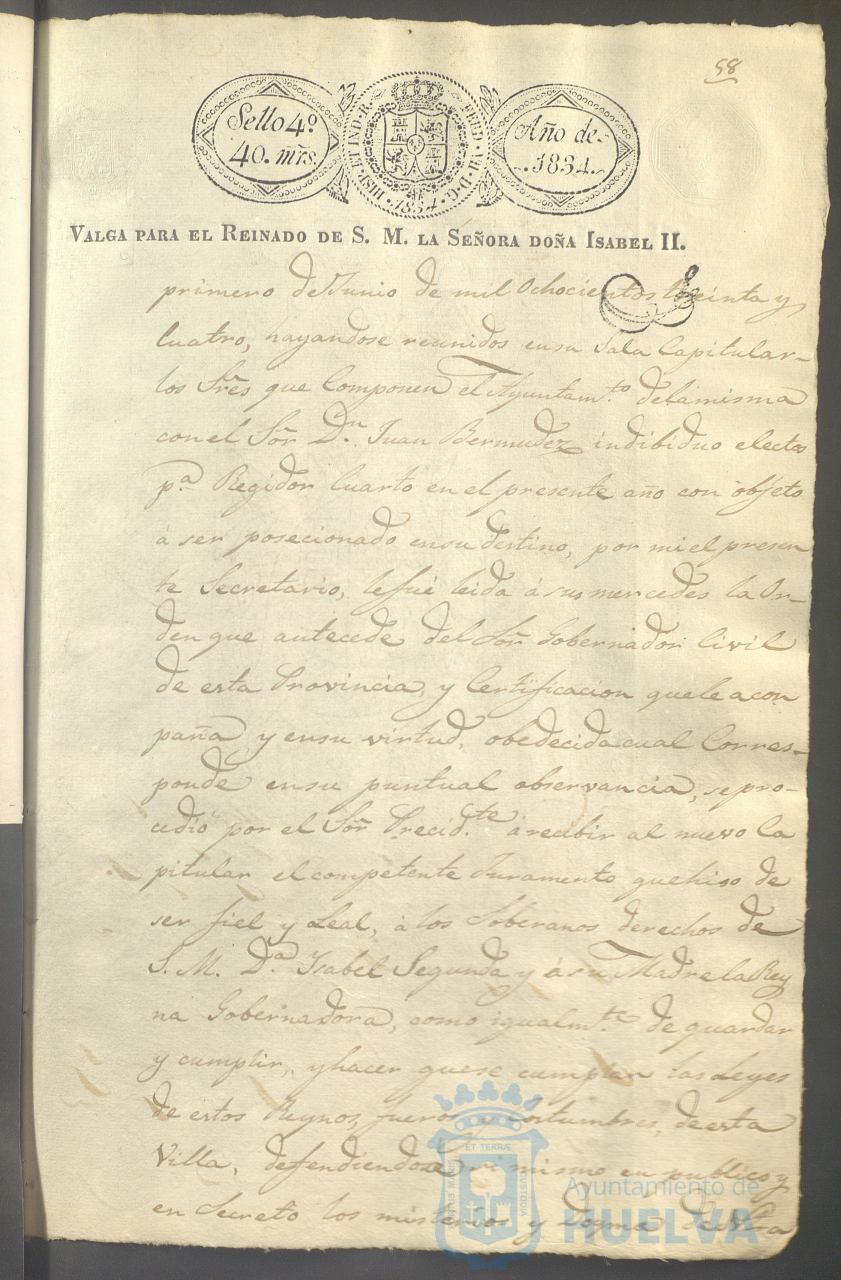 58
Sello 4º
40. mrs.
HISP. ET IND. R. FERD. VII. D. G.
.1834.
Año de
.1834.
VALGA PARA EL REINADO DE S. M. LA SEÑORA DOÑA ISABEL II.
primero de Junio de mil Ochocientos treinta y
cuatro, hayandose reunidos en su Sala Capitular
los Sres que Componen el Ayuntamto. de la misma
con el Sor Dn. Juan Bermudez indibiduo electo
pa Regidor Cuarto en el presente año con objeto
á ser posecionado en su destino, por mi el presen
te Secretario, le fué leida á sus mercedes la Or-
den que antecede del Sor Gobernador Civil
de esta Provincia, y Certificacion que le acom
paña, y en su virtud, obedecida cual Corres-
ponde en su puntual observancia, se pro-
cedió por el Sor Precidte. á recibir al nuevo Ca
pitular el competente Juramento que hiso de
ser fiel y Leal, á los Soberanos derechos de
S. M. Da Isabel Segunda y á su Madre la Rey
na Gobernadora, como igualmte. de guardar
y cumplir, y hacer que se cumplan las Leyes
de estos Reynos, fueros y costumbres, de esta
Villa, defendiendo mismo en publico y
en Secreto los misterios y Dogma de Ntra
ET TERRÆ
PORTUS MARIS
CUSTODIA
Ayuntamiento de
HUELVA